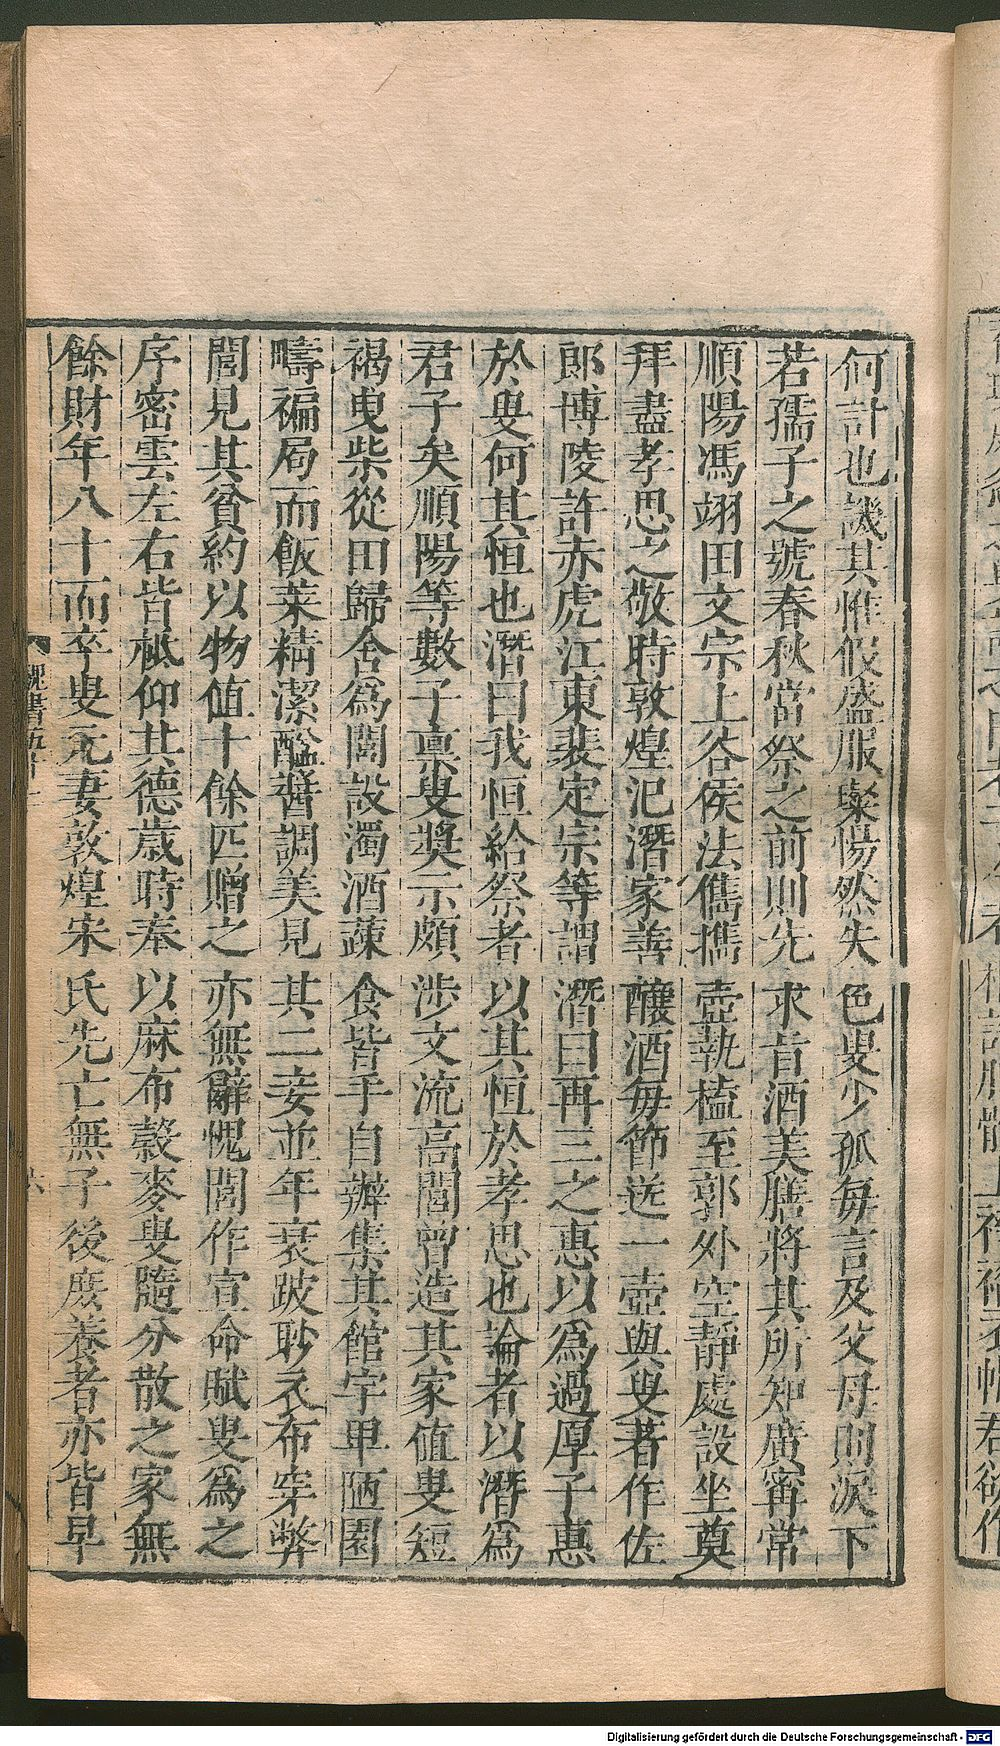 何計也譏其惟假盛服璨惕然失色叟少孤每言及父母則淚下
若孺子之號春秋當祭之前則先求旨酒美膳將其所知廣甯常
順陽馮翊田文宗上谷侯法儁攜壺執榼至郭外空靜處設坐奠
拜盡孝思之敬時敦煌汜潛家善釀酒每節送一壺與叟著作佐
郎博陵許赤虎江東裴定宗等謂潛曰再三之惠以為過厚子惠
於叟何其恒也潛曰我恒給祭者以其恒於孝思也論者以潛為
君子矣順陽等數子稟叟獎示頗涉文流高閭曾造其家值叟短
褐曳柴從田歸舍為閭設濁酒蔬食皆手自辦集其館宇卑陋園
疇褊局而飯菜精潔醯醬調美見其二妾並年衰跛眇衣布穿弊
閭見其貧約以物值十餘匹贈之亦無辭愧閭作宣命賦叟為之
序密雲左右皆祗仰其德歲時奉以麻布穀麥叟隨分散之家無
餘財年八十而卒叟元妻敦煌宋氏先亡無子後庶養者亦皆早
魏書五十二
Digitalisierung gefördert durch die Deutsche Forschungsgemeinschaft - DFG